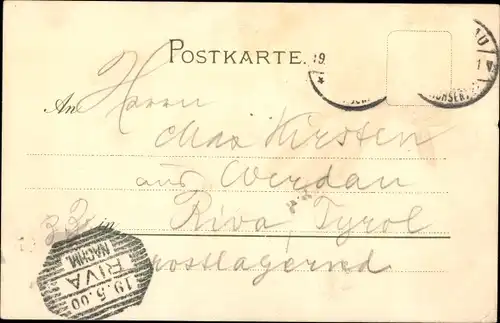 POSTKARTE.
An Herrn
Max Kirsten
aus Werdau
z. Z. in Riva, Tyrol
postlagernd
19.5.00
RIVA
NACHM.